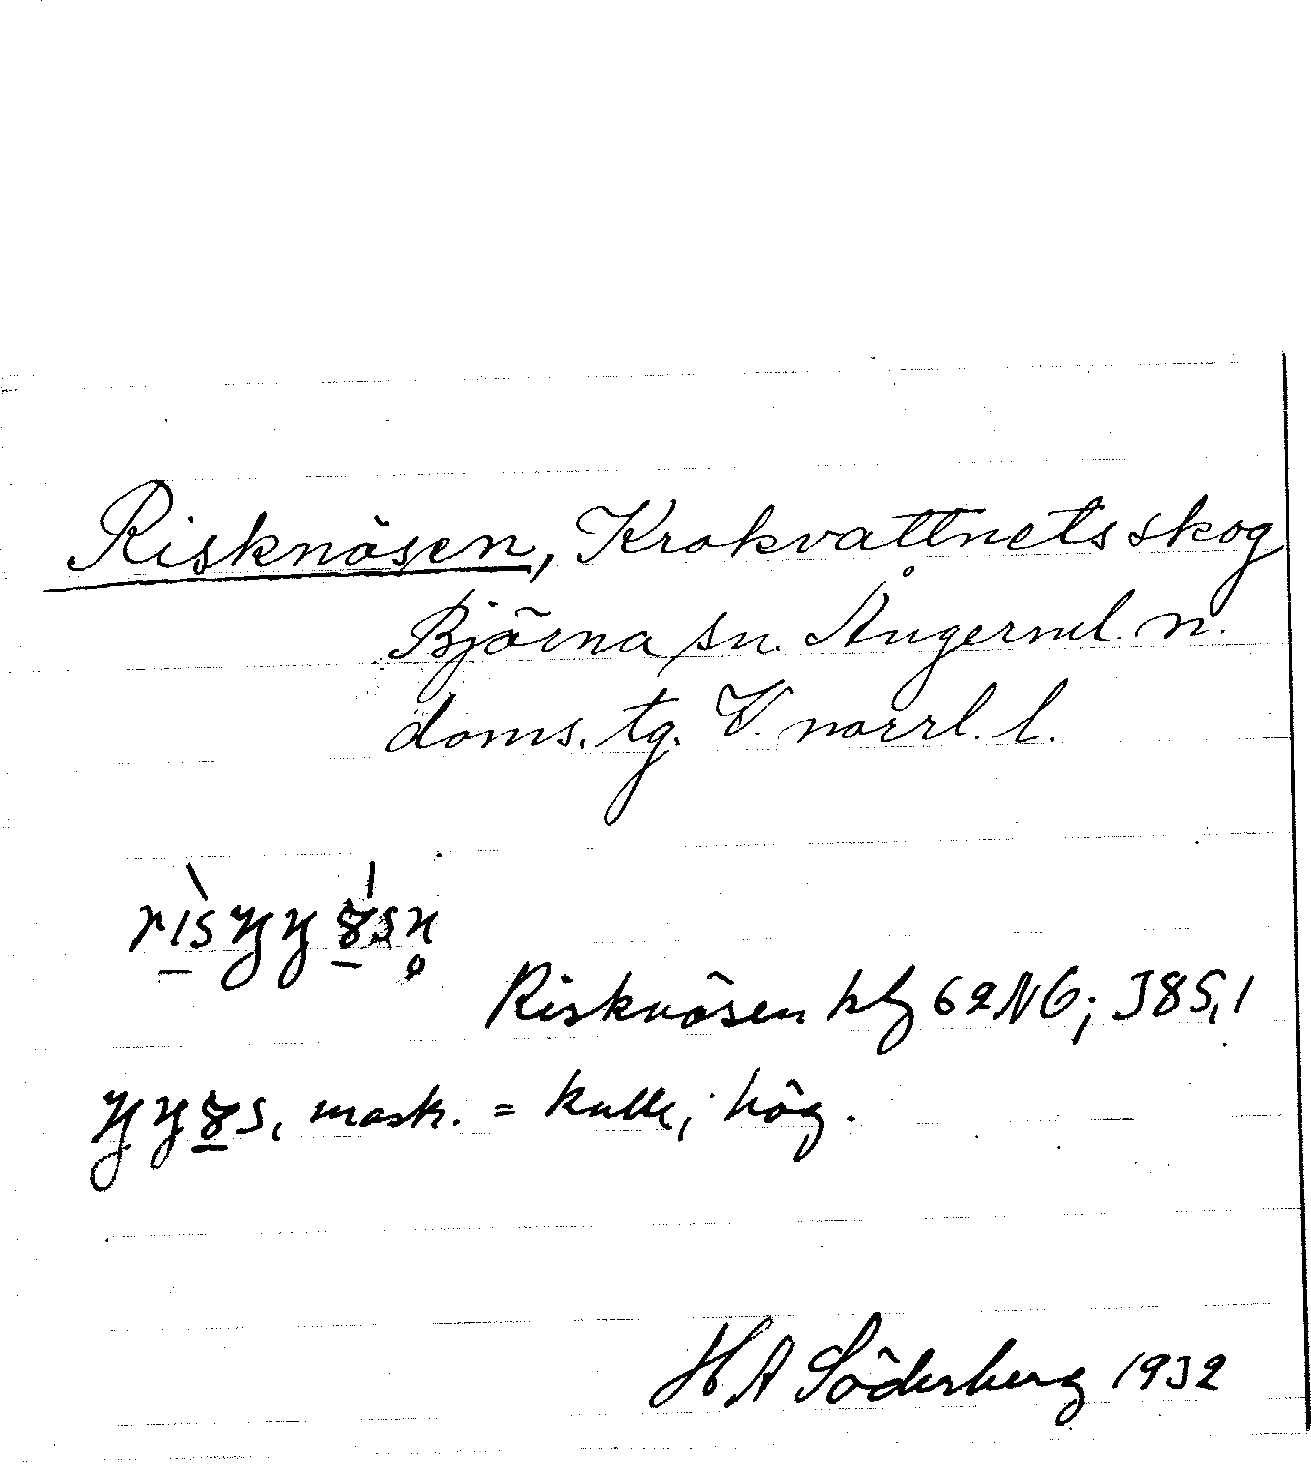 Risknösen, Krokvattnets skog
Björna sn. Ångerml. n.
doms. tg. V. norrl. l.
Risknösen 62 NG; J85,1
mask. = kulle, hög.
H A Söderberg 1932